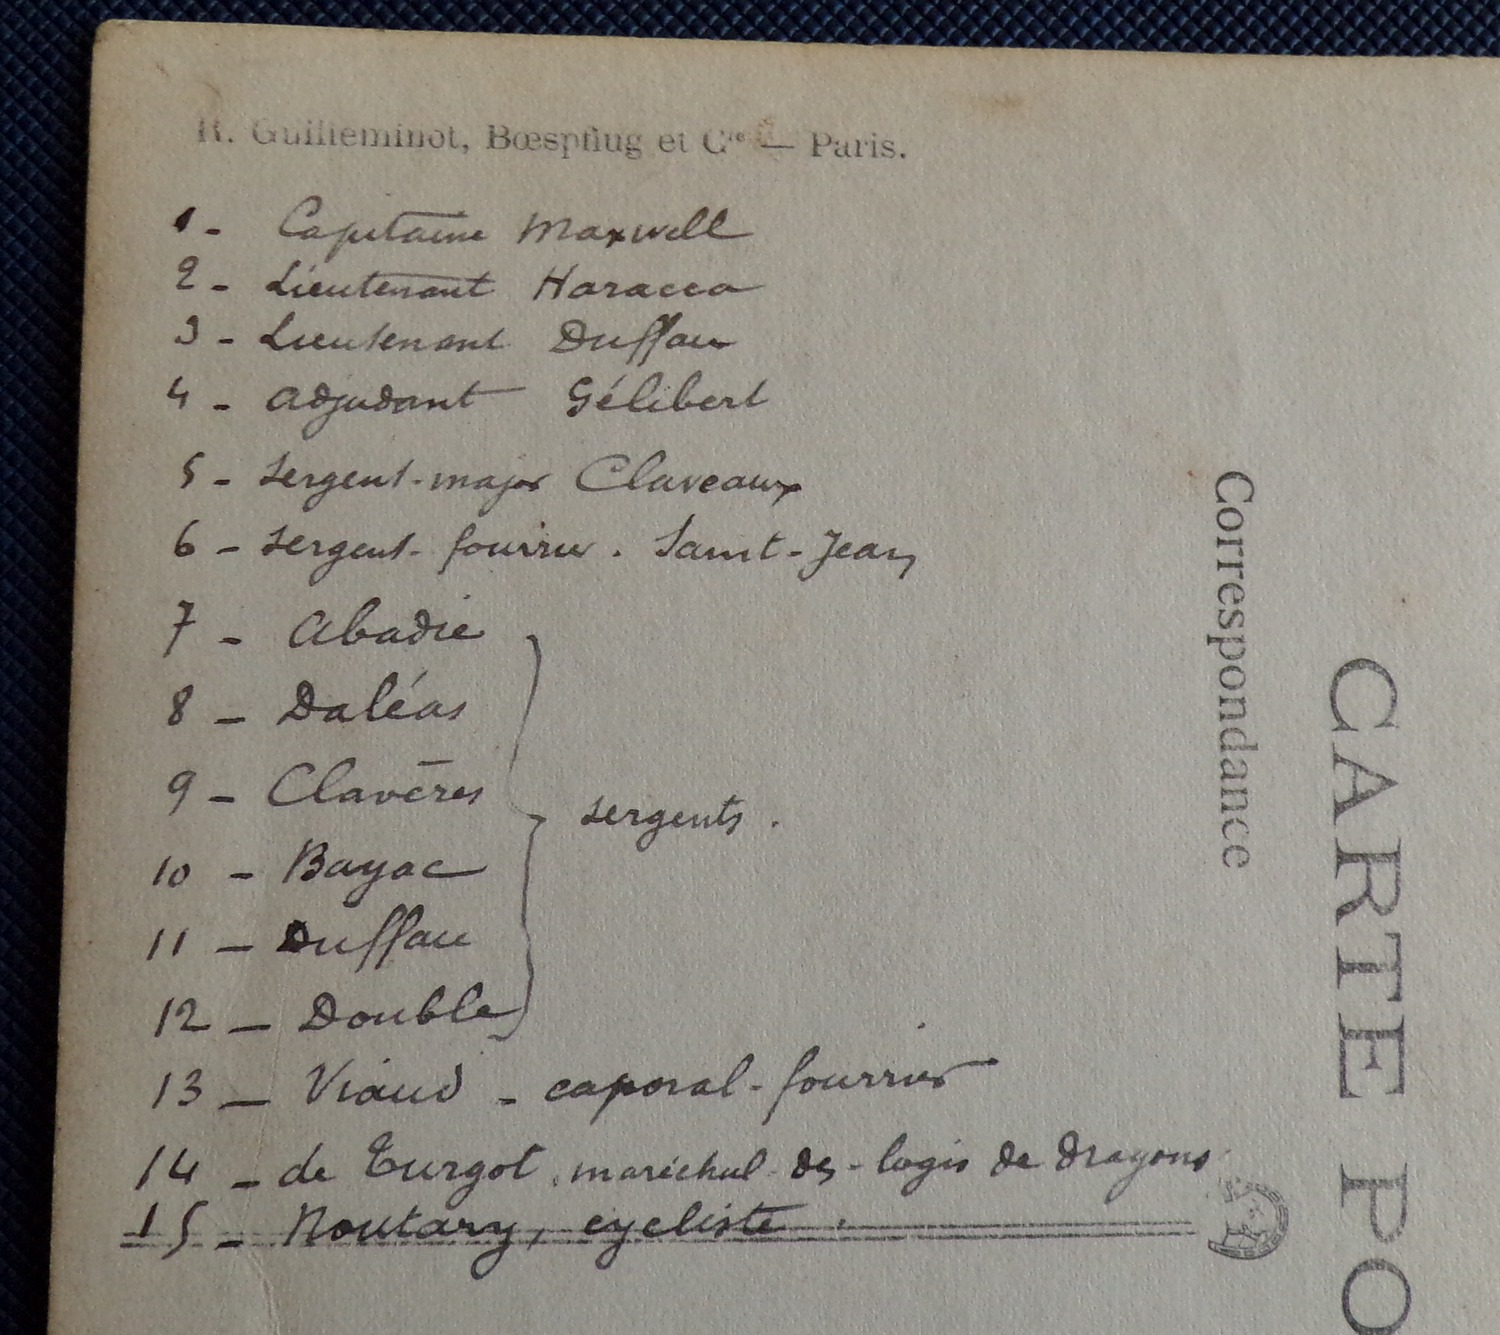 R. Guilleminot, Bœspflug et Cie — Paris.
1 - Capitaine Maxwell
2 - Lieutenant Haracca
3 - Lieutenant Duffau
4 - adjudant Gélibert
5 - sergent-major Claveaux
6 - sergent-fourrier. Saint-Jean
7 - Abadie
8 - Daléas
9 - Clavères
sergents.
10 - Bayac
11 - Duffau
12 - Double
13 - Viaud - caporal-fourrier
14 - de Turgot, maréchal-des-logis de dragons
15 - Noutary, cycliste.
Correspondance
CARTE PO